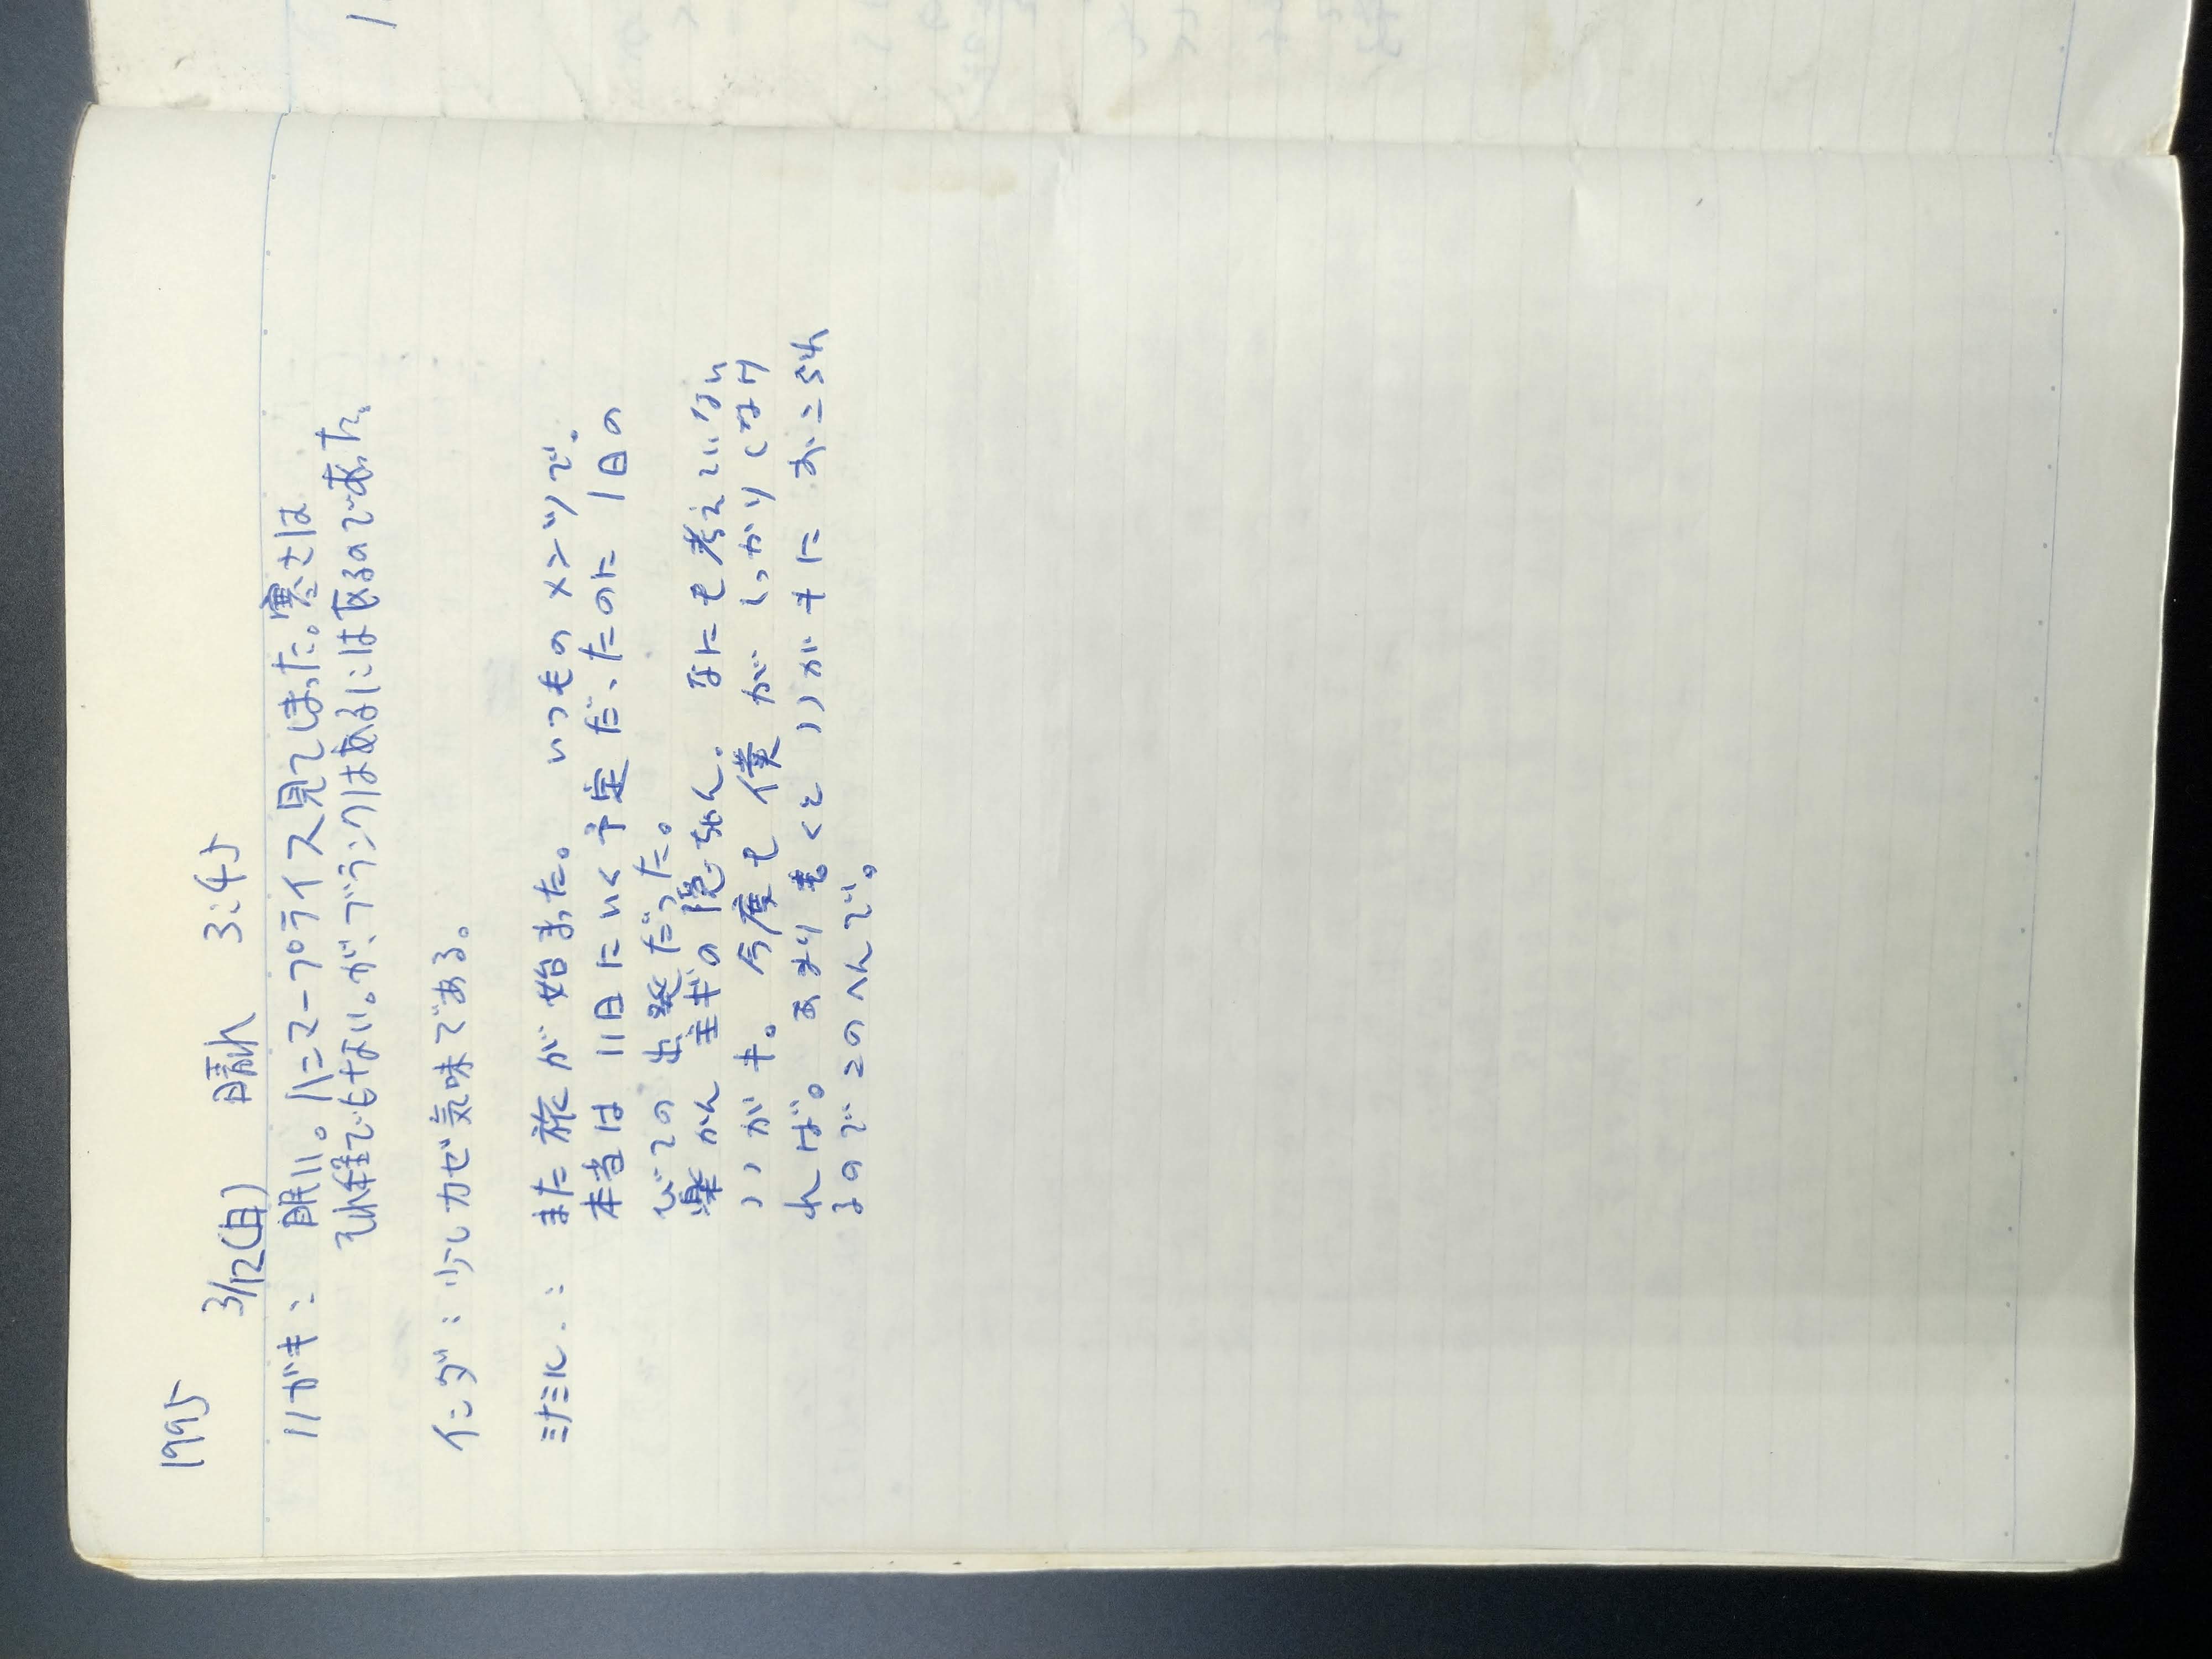 1995
3/12(日) 晴れ 3:45
ハガキ: 眠い。ハンマープライス見てしまった。寒さは
それ程でもない。が、ブランクはあるにはあるのであった。
インダ: 少しカゼ気味である。
ミナミル: また旅が始まった。いつものメンツで。
本当は11日にいく予定だったのに1日の
びての出発だった。
楽がん主ギの隠ちゃん。なにも考えていない
ハガキ。今度も僕がしっかりしなけ
れば。あまり書くとハガキにおこられ
るのでこのへんで。